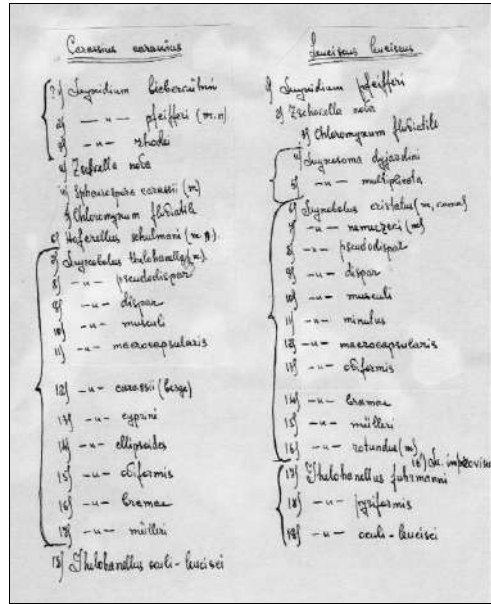 Carassius carassius
?1) Myxidium lieberkühni
2) — u — pfeifferi (m.n)
3) — u — rhodei
4) Zschokella nova
5) Sphaerospora carassii (m)
Chloromyxum fluviatile
6) Hoferellus schulmani
Myxobolus thelohanellus
8) -u- pseudodispar
9) -u- dispar
10) -u- musculi
11) -u- macrocapsularis
12) -u- carassii
13) -u- cyprini
14) -u- ellipsoides
15) -u- oviformis
16) -u- bramae
17) -u- mülleri
18) Thelohanellus oculi-leucisci
Leuciscus leuciscus
1) Myxidium pfeifferi
2) Zschokella nova
3) Chloromyxum fluviatile
4) Myxosoma dujardini
5) -u- multiplicata
6) Myxobolus cristatus
7) -u- nemeczeki (m)
8) -u- pseudodispar
9) -u- dispar
10) -u- musculi
11) -u- minutus
12) -u- macrocapsularis
13) -u- oviformis
14) -u- bramae
15) -u- mülleri
16) -u- rotundus (m)
17) Thelohanellus fuhrmanni
18) -u- pyriformis
19) -u- oculi-leucisci